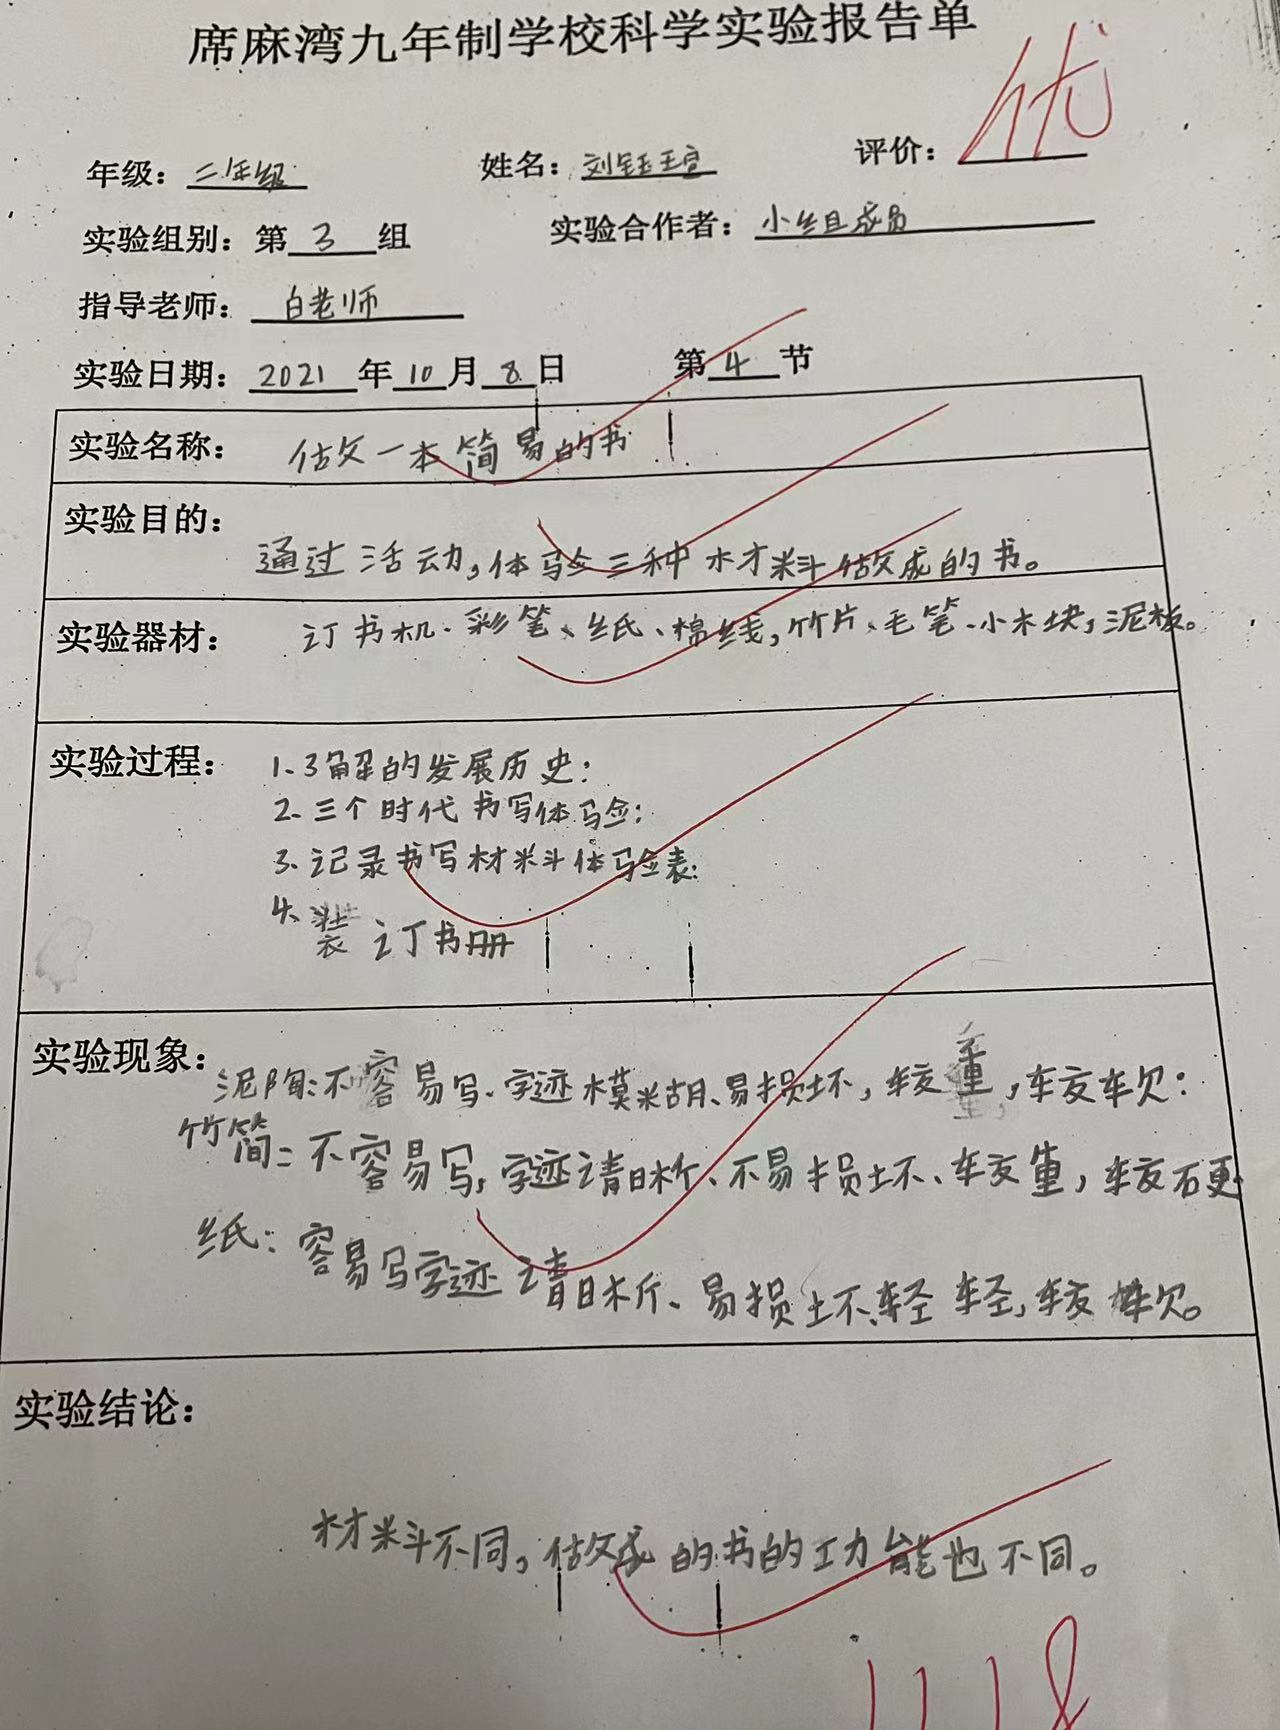 席麻湾九年制学校科学实验报告单
年级：二年级 姓名：刘钰瑄 评价：优
实验组别：第3组 实验合作者：小组成员
指导老师：白老师
实验日期：2021年10月8日 第4节
实验名称：做一本简易的书
实验目的：
通过活动，体验三种材料做成的书。
实验器材：订书机、彩笔、纸、棉线，竹片、毛笔、小木块，泥板。
实验过程：1.了解的发展历史；
2.三个时代书写体验；
3.记录书写材料体验表；
4.装订书册
实验现象：
泥陶：不容易写、字迹模糊、易损坏，较重，较软：
竹简：不容易写，字迹清晰、不易损坏、较重，较硬
纸：容易写字迹清晰、易损坏、轻轻，较软。
实验结论：
材料不同，做成的书的功能也不同。
11.8